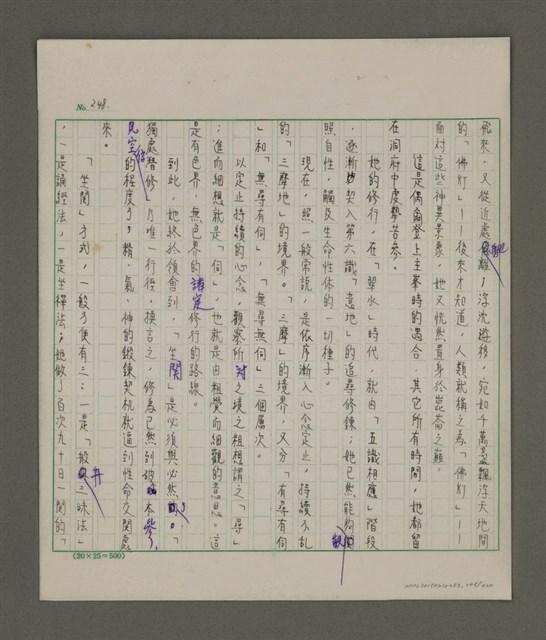 No. 248.
飛來,又從近處飄離;浮沈遊移,宛如千萬盞飄浮天地間
的「佛灯」——後來才知道,人類就稱之為「佛灯」——
面對這些神異景象,她又恍然置身於崑崙之巔。
這是偶侖登上主峯時的遇合,其它所有時間,她都留
在洞府中虔摯苦參。
她的修行,在「翠水」時代,就由「五識相應」階段
,逐漸契入第六識「意地」的追尋修鍊;她已然能夠觀
照自性,觸及生命性体的一切種子。
現在,照一般常說,是依序漸入心念定止,持續不乱
的「三摩地」的境界。「三摩」的境界,又分「有尋有伺
」和「無尋有伺」,「無尋無伺」三個層次。
以定止持續的心念,觀察所對之境之粗想謂之「尋」
;進而細想就是「伺」,也就是由粗覺而細觀的意思。這
是有色界、無色界的諸定修行的路線。
到此,她終於領會到,「坐関」是必須與必然。「
獨處潛修」乃唯一行徑,換言之,修為已然到彼本參,
見空性的程度了;精、氣、神的鍛鍊契机就逼到性命交関處
來。
「坐関」方式,一般方便有三:一是「般舟三昧法」
,一是誦經法,一是坐禪法;她做了百次九十日一関的「
(20×25=500)